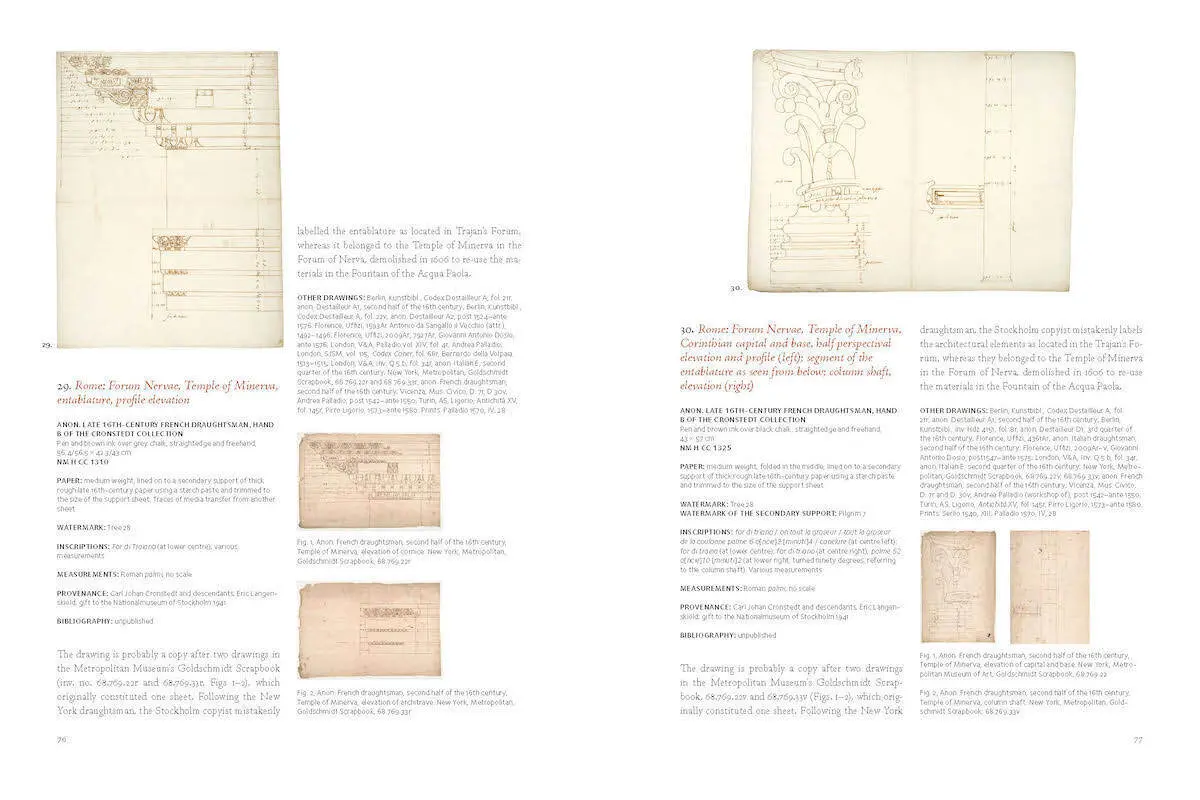 29.
29. Rome: Forum Nervae, Temple of Minerva,
entablature, profile elevation
ANON. LATE 16TH-CENTURY FRENCH DRAUGHTSMAN, HAND
B OF THE CRONSTEDT COLLECTION
Pen and brown ink over grey chalk, straightedge and freehand,
56.4/56.5 × 42.3/43 cm
NM H CC 1310
PAPER: medium weight, lined on to a secondary support of thick
rough late 16th-century paper using a starch paste and trimmed to
the size of the support sheet. Traces of media transfer from another
sheet
WATERMARK: Tree 28
INSCRIPTIONS: For di Troiano (at lower centre); various
measurements
MEASUREMENTS: Roman palmi, no scale
PROVENANCE: Carl Johan Cronstedt and descendants; Eric Langen-
skiöld; gift to the Nationalmuseum of Stockholm 1941
BIBLIOGRAPHY: unpublished
The drawing is probably a copy after two drawings in
the Metropolitan Museum's Goldschmidt Scrapbook
(inv. no. 68.769.22r and 68.769.33r, Figs 1–2), which
originally constituted one sheet. Following the New
York draughtsman, the Stockholm copyist mistakenly
76
labelled the entablature as located in Trajan's Forum,
whereas it belonged to the Temple of Minerva in the
Forum of Nerva, demolished in 1606 to re-use the ma-
terials in the Fountain of the Acqua Paola.
OTHER DRAWINGS: Berlin, Kunstbibl., Codex Destailleur A, fol. 21r,
anon. Destailleur A1, second half of the 16th century; Berlin, Kunstbibl.,
Codex Destailleur A, fol. 22v, anon. Destailleur A2, post 1524–ante
1576; Florence, Uffizi, 1593Ar Antonio da Sangallo il Vecchio (attr.),
1492–1496; Florence, Uffizi, 2009Ar, 7927Ar, Giovanni Antonio Dosio,
ante 1576; London, V&A, Palladio vol. XIV, fol. 4r, Andrea Palladio;
London, SJSM, vol. 115, Codex Coner, fol. 68r, Bernardo della Volpaia,
1513–1515; London, V&A, inv. Q.5.b, fol. 34r, anon. Italian E, second
quarter of the 16th century; New York, Metropolitan, Goldschmidt
Scrapbook, 68.769.22r and 68.769.33r, anon. French draughtsman,
second half of the 16th century; Vicenza, Mus. Civico, D. 7r, D 30v,
Andrea Palladio, post 1542–ante 1550; Turin, AS, Ligorio, Antichità XV,
fol. 145r, Pirro Ligorio, 1573–ante 1580. Prints: Palladio 1570, IV, 28
Fig. 1, Anon. French draughtsman, second half of the 16th century,
Temple of Minerva, elevation of cornice. New York, Metropolitan,
Goldschmidt Scrapbook, 68.769.22r
Fig. 2, Anon. French draughtsman, second half of the 16th century,
Temple of Minerva, elevation of architrave. New York, Metropolitan,
Goldschmidt Scrapbook, 68.769.33r
30.
30. Rome: Forum Nervae, Temple of Minerva,
Corinthian capital and base, half perspectival
elevation and profile (left); segment of the
entablature as seen from below; column shaft,
elevation (right)
ANON. LATE 16TH-CENTURY FRENCH DRAUGHTSMAN, HAND
B OF THE CRONSTEDT COLLECTION
Pen and brown ink over black chalk, straightedge and freehand,
43 × 57 cm
NM H CC 1325
PAPER: medium weight, folded in the middle, lined on to a secondary
support of thick rough late 16th-century paper using a starch paste
and trimmed to the size of the support sheet
WATERMARK: Tree 28
WATERMARK OF THE SECONDARY SUPPORT: Pilgrim 7
INSCRIPTIONS: for di triano / on tout la groseur / tout la groseur
de la coulonne palme 6 o[ncie]3 [minuti]4 / canclure (at centre left);
for di triano (at lower centre); for di triano (at centre right); palme 52
o[ncie]10 [minuti]2 (at lower right, turned ninety degrees, referring
to the column shaft). Various measurements
MEASUREMENTS: Roman palmi, no scale
PROVENANCE: Carl Johan Cronstedt and descendants; Eric Langen-
skiöld; gift to the Nationalmuseum of Stockholm 1941
BIBLIOGRAPHY: unpublished
The drawing is probably a copy after two drawings
in the Metropolitan Museum's Goldschmidt Scrap-
book, 68.769.22v and 68.769.33v (Figs. 1–2), which orig-
inally constituted one sheet. Following the New York
draughtsman, the Stockholm copyist mistakenly labels
the architectural elements as located in the Trajan's Fo-
rum, whereas they belonged to the Temple of Minerva
in the Forum of Nerva, demolished in 1606 to re-use
the materials in the Fountain of the Acqua Paola.
OTHER DRAWINGS: Berlin, Kunstbibl., Codex Destailleur A, fol.
21r, anon. Destailleur A1, second half of the 16th century; Berlin,
Kunstbibl., inv. Hdz 4151, fol. 8r, anon. Destailleur D1, 3rd quarter of
the 16th century; Florence, Uffizi, 4361Ar, anon. Italian draughtsman,
second half of the 16th century; Florence, Uffizi, 2009Ar–v, Giovanni
Antonio Dosio, post 1547–ante 1575; London, V&A, inv. Q.5.b, fol. 34r,
anon. Italian E, second quarter of the 16th century; New York, Metro-
politan, Goldschmidt Scrapbook, 68.769.22v, 68.769.33v, anon. French
draughtsman, second half of the 16th century; Vicenza, Mus. Civico,
D. 7r and D. 30v, Andrea Palladio (workshop of), post 1542–ante 1550;
Turin, AS, Ligorio, Antichità XV, fol. 145r, Pirro Ligorio, 1573–ante 1580.
Prints: Serlio 1540, XIII; Palladio 1570, IV, 28
Fig. 1, Anon. French draughtsman, second half of the 16th century,
Temple of Minerva, elevation of capital and base. New York, Metro-
politan Museum of Art, Goldschmidt Scrapbook, 68.769.22
Fig. 2, Anon. French draughtsman, second half of the 16th century,
Temple of Minerva, column shaft. New York, Metropolitan, Gold-
schmidt Scrapbook, 68.769.33v
77